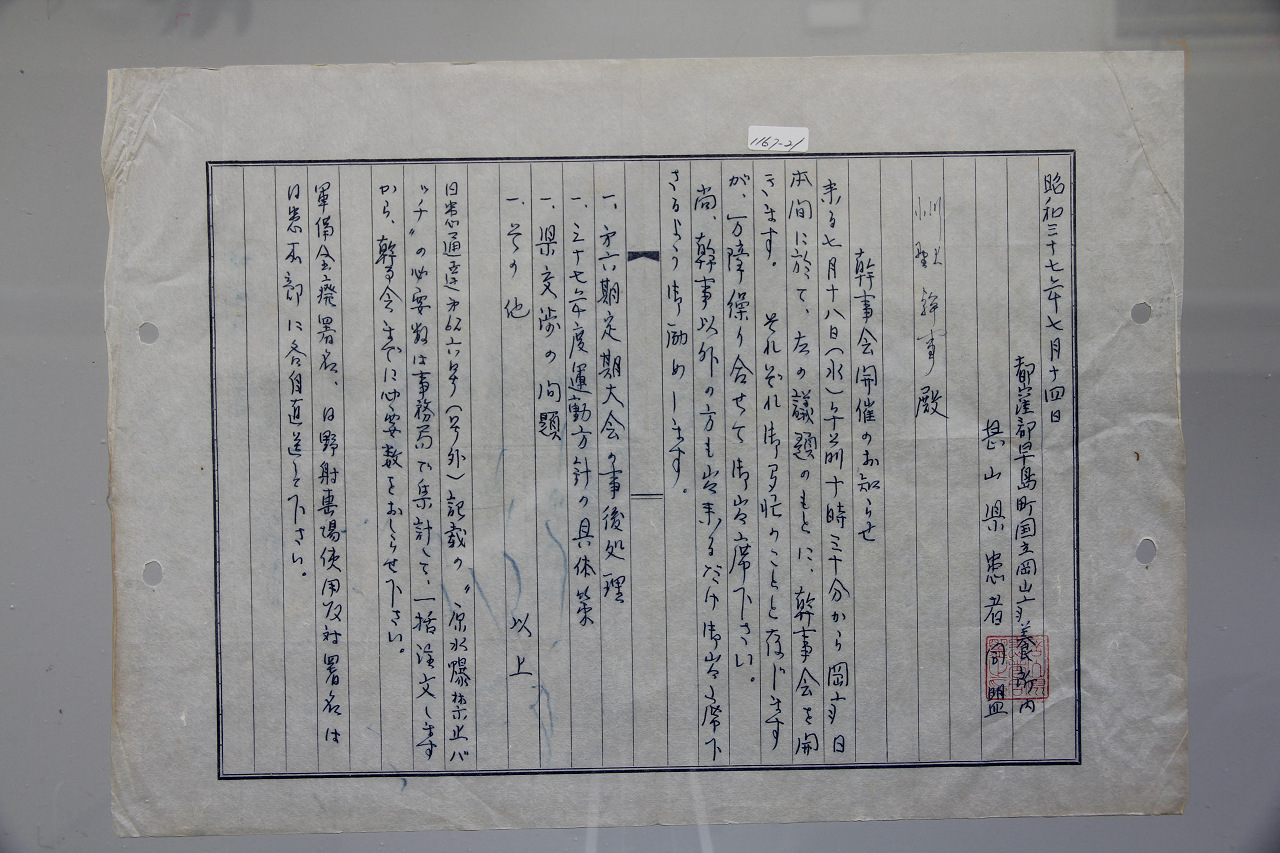 1167-21
昭和三十七年七月十四日
都窪郡早島町国立岡山療養所内
岡山県患者同盟
幹事殿
幹事会開催のお知らせ
来る七月十八日(水)午前十時三十分から岡療日
本間に於て、左の議題のもとに、幹事会を開
きます。それぞれ御多忙のことと存じます
が、万障繰り合せて御出席下さい。
尚、幹事以外の方も出来るだけ御出席下
さるよう御励めします。
一、第六期定期大会の事後処理
一、三十七年度運動方針の具体策
一、県交渉の問題
一、その他
以上
日患通達第六号(号外)記載の〝原水爆禁止バ
ッチ〟の必要数は事務局で集計して、一括注文します
から、幹事会までに必要数をおしらせ下さい。
軍備全廃署名、日野射撃場使用反対署名は
日患本部に各自直送して下さい。